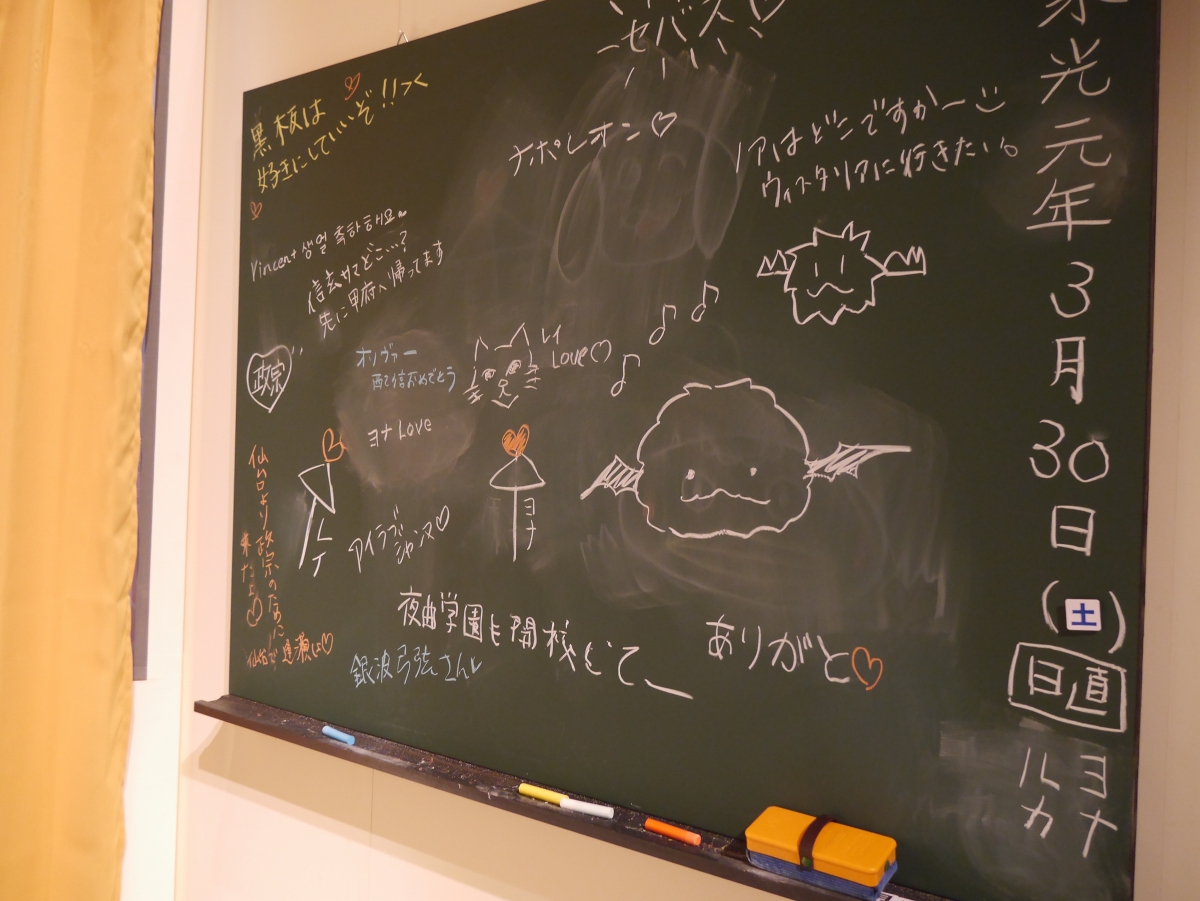 セバス
黒板は
好きにしていいぞ!!
ナポレオン♡
ノアはどこですかー
ウィスタリアに行きたい。
Vincent 생일 축하해요~
信玄サマどこ…?
先に甲府へ帰ってます
政宗
レイ
Love♡
配信おめでとう
ヨナ Love
ヨナ
アイラブ
ジャンヌ♡
仙台より政宗のために
来たよ
夜曲学園も開校して
銀波弓弦さん
ありがと♡
光元年3月30日(土)
日直
ヨナ
ルカ